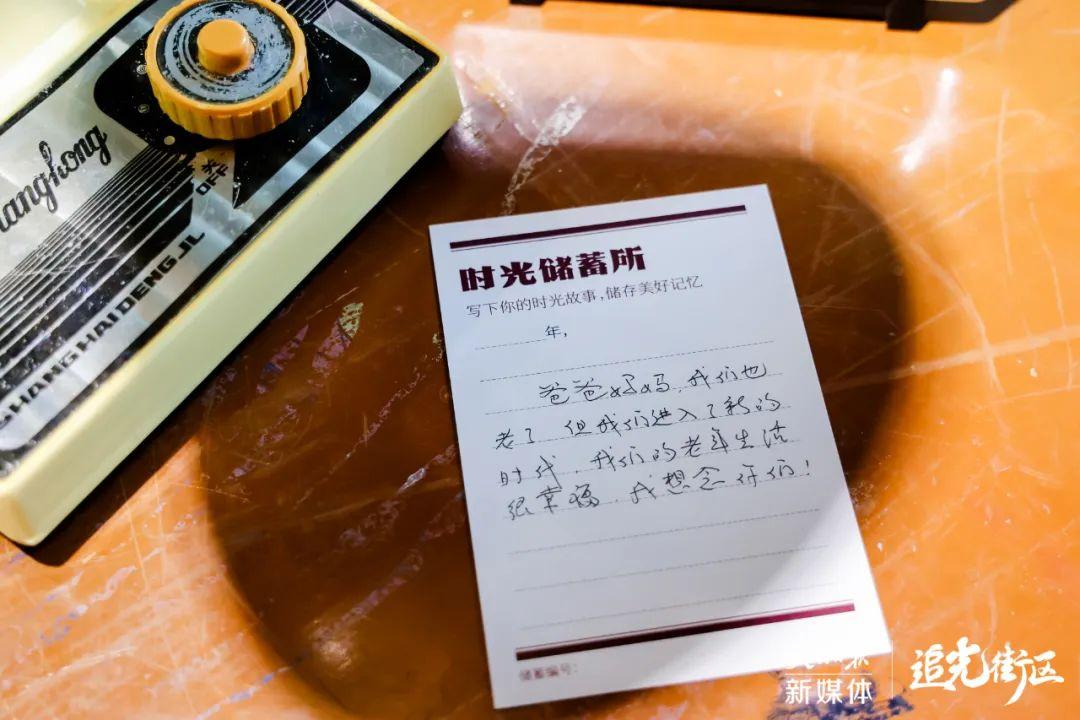 anghong
SHANGHAI DENG JL
时光储蓄所
写下你的时光故事,储存美好记忆
年,
爸爸妈妈,我们也
老了 但我们进入了新的
时代,我们的老年生活
很幸福,我想念你们!
储蓄编号:
新媒体
追光街区